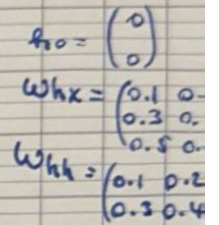 h0 = (0
0)
Whx = (0.1 0.
0.3 0.
0.5 0.
Whh = (0.1 0.2
0.3 0.4